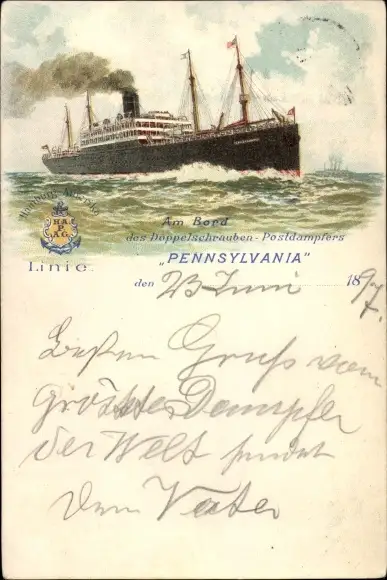 Hamburg-Amerika
HA
P.
A.G.
Linie.
Am Bord
des Doppelschrauben-Postdampfers
„PENNSYLVANIA“
den 23 Juni 1897.
Besten Gruß vom
Grössten Dampfer
der Welt sendet
Dein Vater